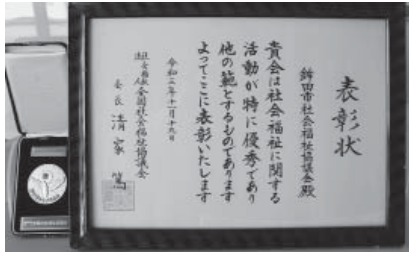 表彰状
鉾田市社会福祉協議会殿
貴会は社会福祉に関する
活動が特に優秀であり
他の範とするものであります
よってここに表彰いたします
令和三年十一月十九日
社会福祉法人全国社会福祉協議会
会長 清家 篤